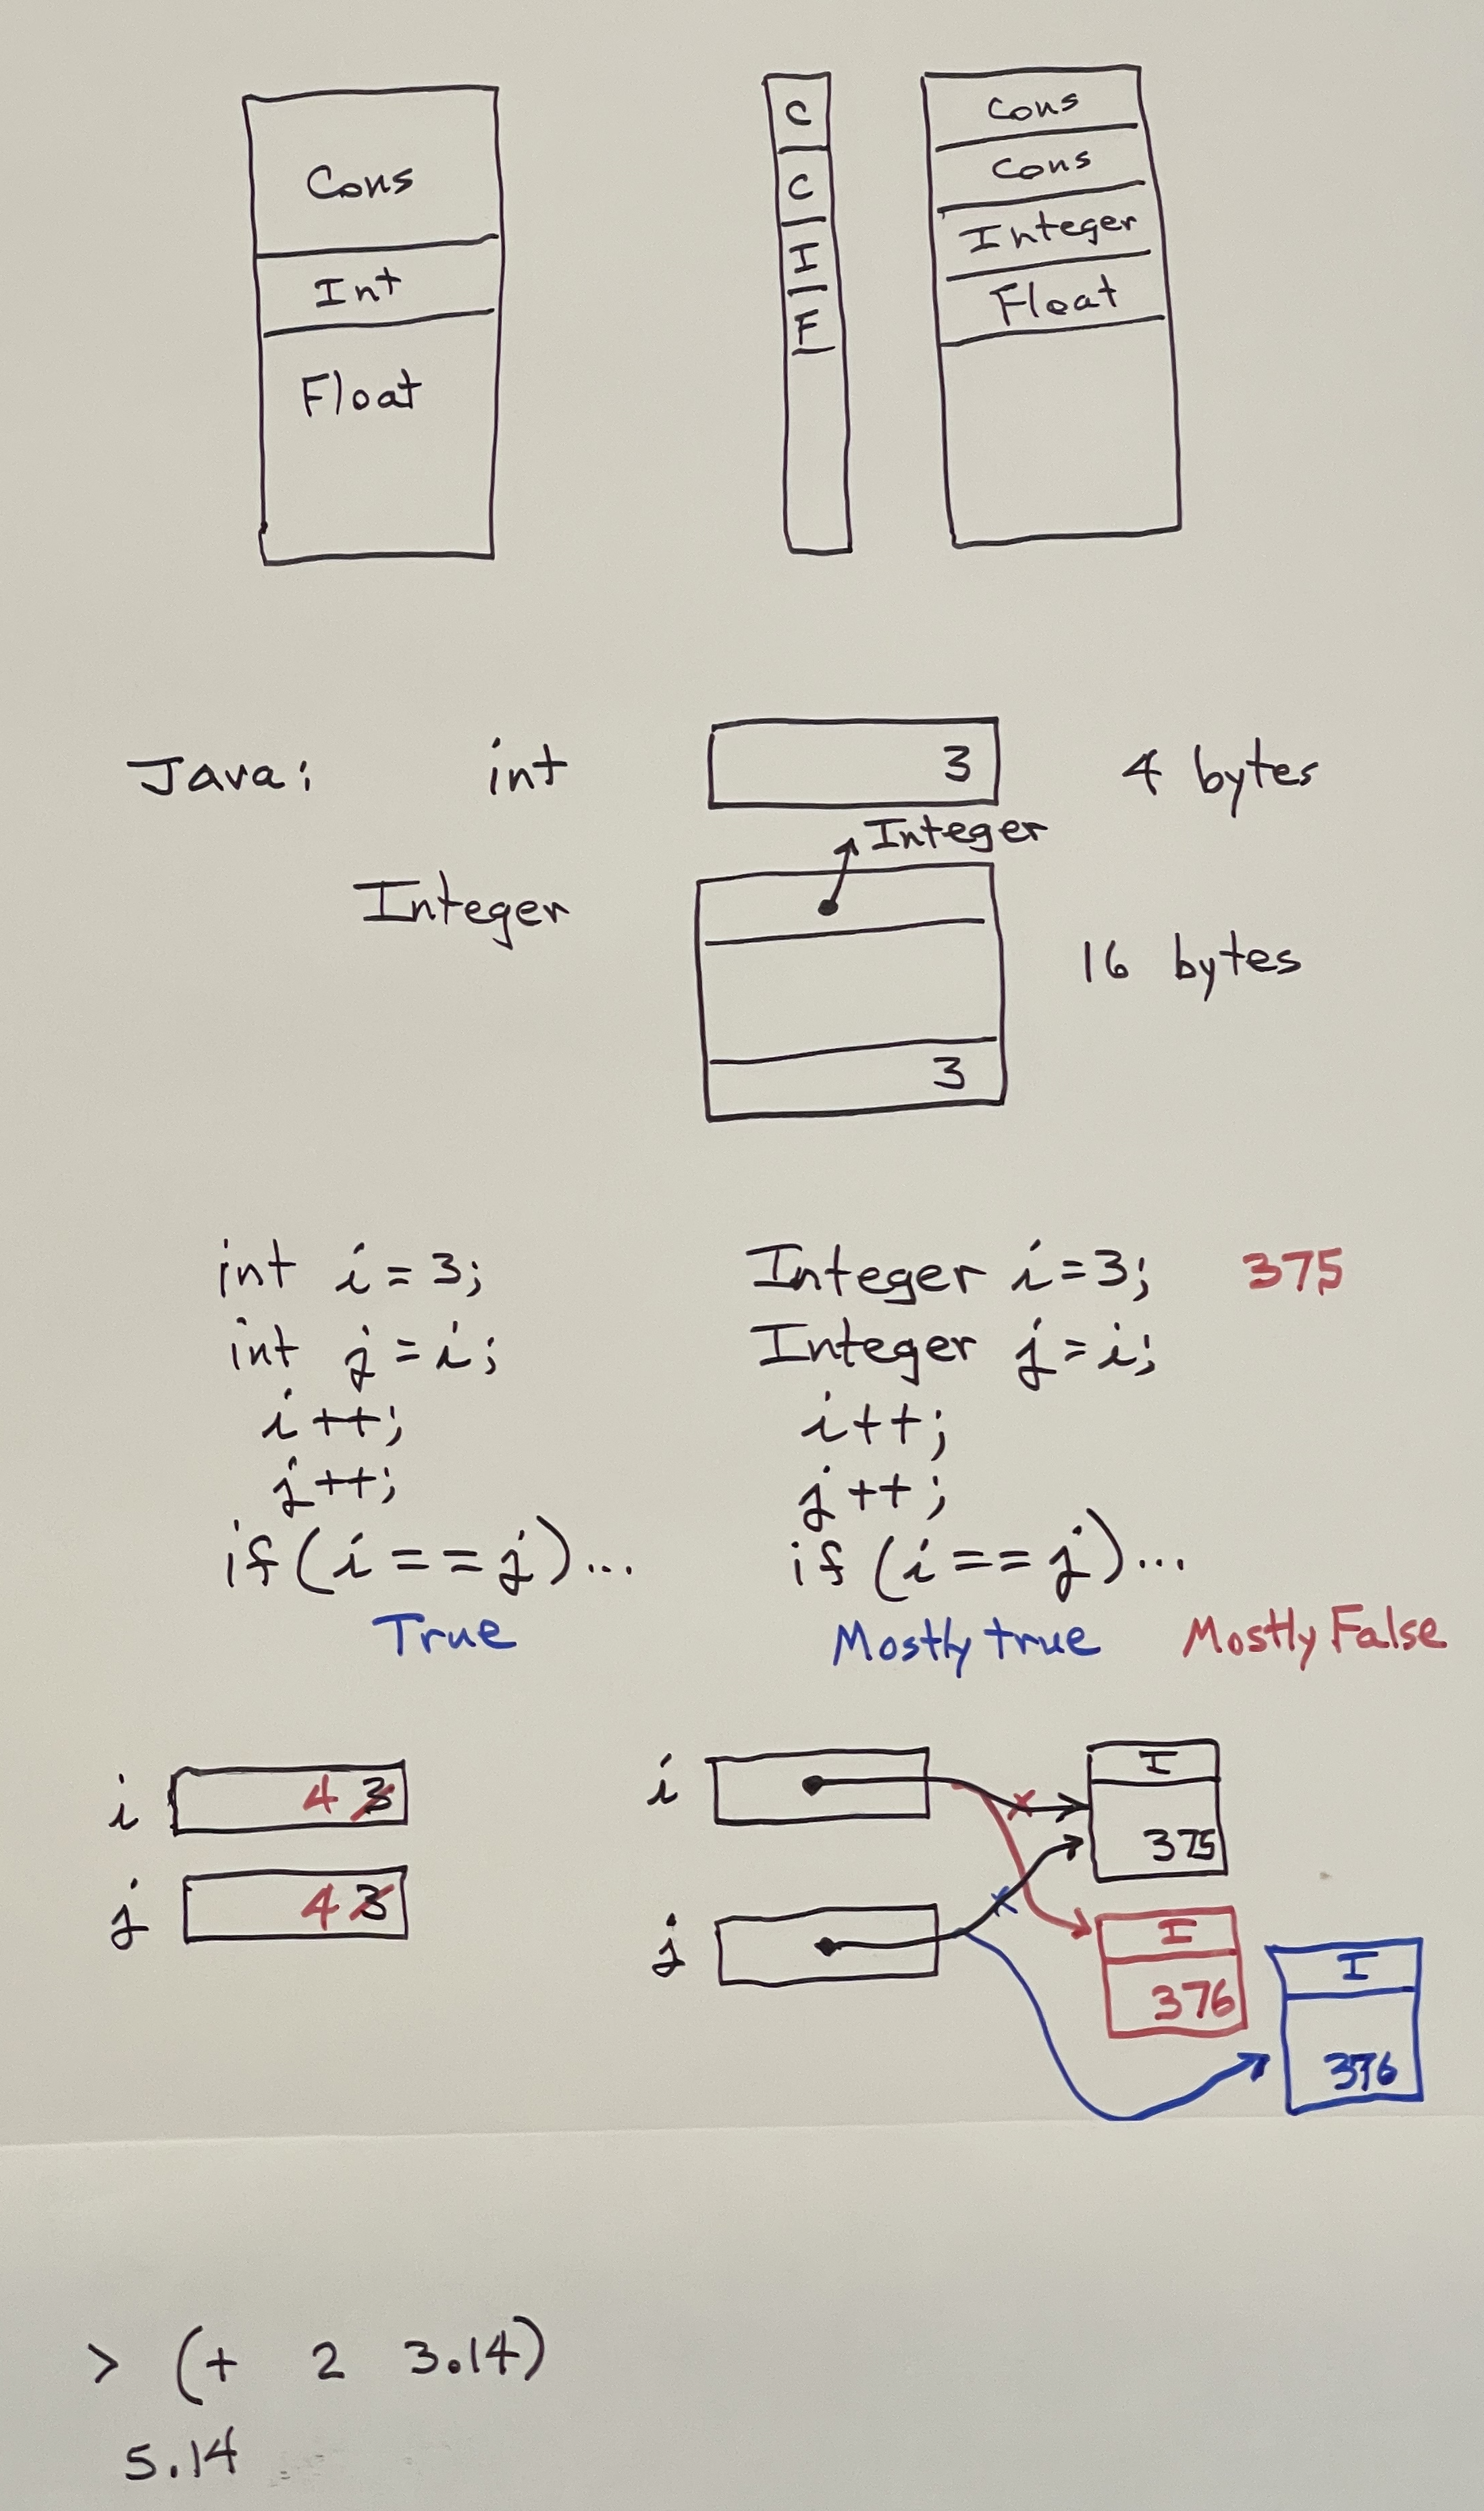 Cons
Int
Float
C
C
I
F
Cons
Cons
Integer
Float
Java: int 3 4 bytes
Integer
Integer
16 bytes
3
int i = 3;
int j = i;
i ++;
j ++;
if (i == j) ...
True
Integer i = 3; 375
Integer j = i;
i ++;
j ++;
if (i == j) ...
Mostly true Mostly False
i 4 3
j 4 3
i
I
375
j
I
376
I
376
> (+ 2 3.14)
5.14